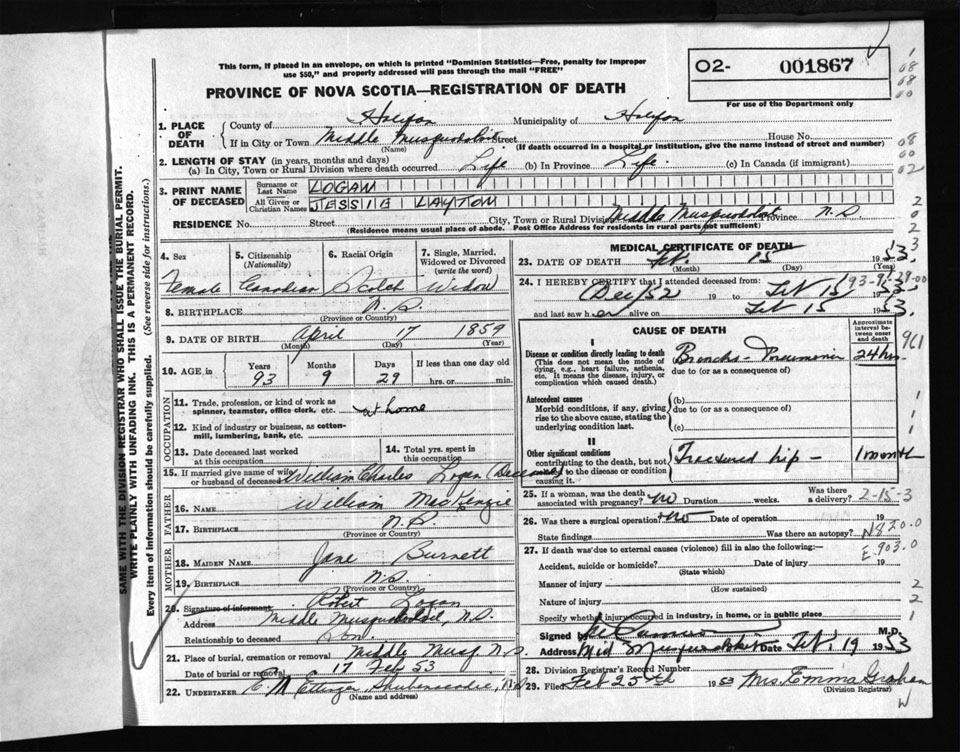 This form, if placed in an envelope, on which is printed "Dominion Statistics—Free, penalty for improper
use $50," and properly addressed will pass through the mail "FREE"
O2- 001867
For use of the Department only
PROVINCE OF NOVA SCOTIA—REGISTRATION OF DEATH
SAME WITH THE DIVISION REGISTRAR WHO SHALL ISSUE THE BURIAL PERMIT.
WRITE PLAINLY WITH UNFADING INK. THIS IS A PERMANENT RECORD.
Every item of information should be carefully supplied. (See reverse side for instructions.)
1. PLACE OF DEATH
County of Halifax Municipality of Halifax
If in City or Town Middle Musquodoboit Street House No.
(Name) (If death occurred in a hospital or institution, give the name instead of street and number)
2. LENGTH OF STAY (in years, months and days)
(a) In City, Town or Rural Division where death occurred Life (b) In Province Life. (c) In Canada (if immigrant)
3. PRINT NAME OF DECEASED
Surname or Last Name LOGAN
All Given or Christian Names JESSIE LAYTON
RESIDENCE No. Street City, Town or Rural Division Middle Musquodoboit Province N.S.
(Residence means usual place of abode. Post Office Address for residents in rural parts not sufficient)
4. Sex Female
5. Citizenship (Nationality) Canadian
6. Racial Origin Scotch
7. Single, Married, Widowed or Divorced (write the word) Widow
8. BIRTHPLACE N.S.
(Province or Country)
9. DATE OF BIRTH April 17 1859
(Month) (Day) (Year)
10. AGE in Years 93 Months 9 Days 29 If less than one day old
hrs. or min.
OCCUPATION
11. Trade, profession, or kind of work as spinner, teamster, office clerk, etc. at home
12. Kind of industry or business, as cotton-mill, lumbering, bank, etc.
13. Date deceased last worked at this occupation
14. Total yrs. spent in this occupation
15. If married give name of wife or husband of deceased William Charles Logan (Deceased)
FATHER
16. NAME William MacKenzie
17. BIRTHPLACE N.S.
(Province or Country)
MOTHER
18. MAIDEN NAME Jane Burnett
19. BIRTHPLACE N.S.
(Province or Country)
20. Signature of informant Robert Logan
Address Middle Musquodoboit, N.S.
Relationship to deceased Son.
21. Place of burial, cremation or removal Middle Musq N.S.
Date of burial or removal 17 Feb 53
22. UNDERTAKER E. M. Ettinger Shubenacadie, N.S.
(Name and address)
MEDICAL CERTIFICATE OF DEATH
23. DATE OF DEATH Feb. 15 1953.
(Month) (Day) (Year)
24. I HEREBY CERTIFY that I attended deceased from:
Dec/52 19 to Feb 15/ 1953.
and last saw her alive on Feb 15 1953.
93-9-29-00
CAUSE OF DEATH
Approximate interval between onset and death
I
Disease or condition directly leading to death
(This does not mean the mode of dying, e.g., heart failure, asthenia, etc. It means the disease, injury, or complication which caused death.)
Broncho-Pneumonia 24 hrs
due to (or as a consequence of)
Antecedent causes
Morbid conditions, if any, giving rise to the above cause, stating the underlying condition last.
(b)
due to (or as a consequence of)
(c)
II
Other significant conditions
contributing to the death, but not to the disease or condition causing it.
Fractured hip - 1 month
25. If a woman, was the death associated with pregnancy? no Duration weeks. Was there a delivery?
2-15-3
26. Was there a surgical operation? no Date of operation 19
State findings Was there an autopsy?
N820.0
E.903.0
27. If death was due to external causes (violence) fill in also the following:—
Accident, suicide or homicide? Date of injury 19
(State which)
Manner of injury
(How sustained)
Nature of injury
Specify whether injury occurred in industry, in home, or in public place
Signed by M.D.
Address Mid Musquodoboit Date Feb. 19 1953
28. Division Registrar's Record Number
29. Filed Feb 25th 1953 Mrs. Emma Graham
(Division Registrar)